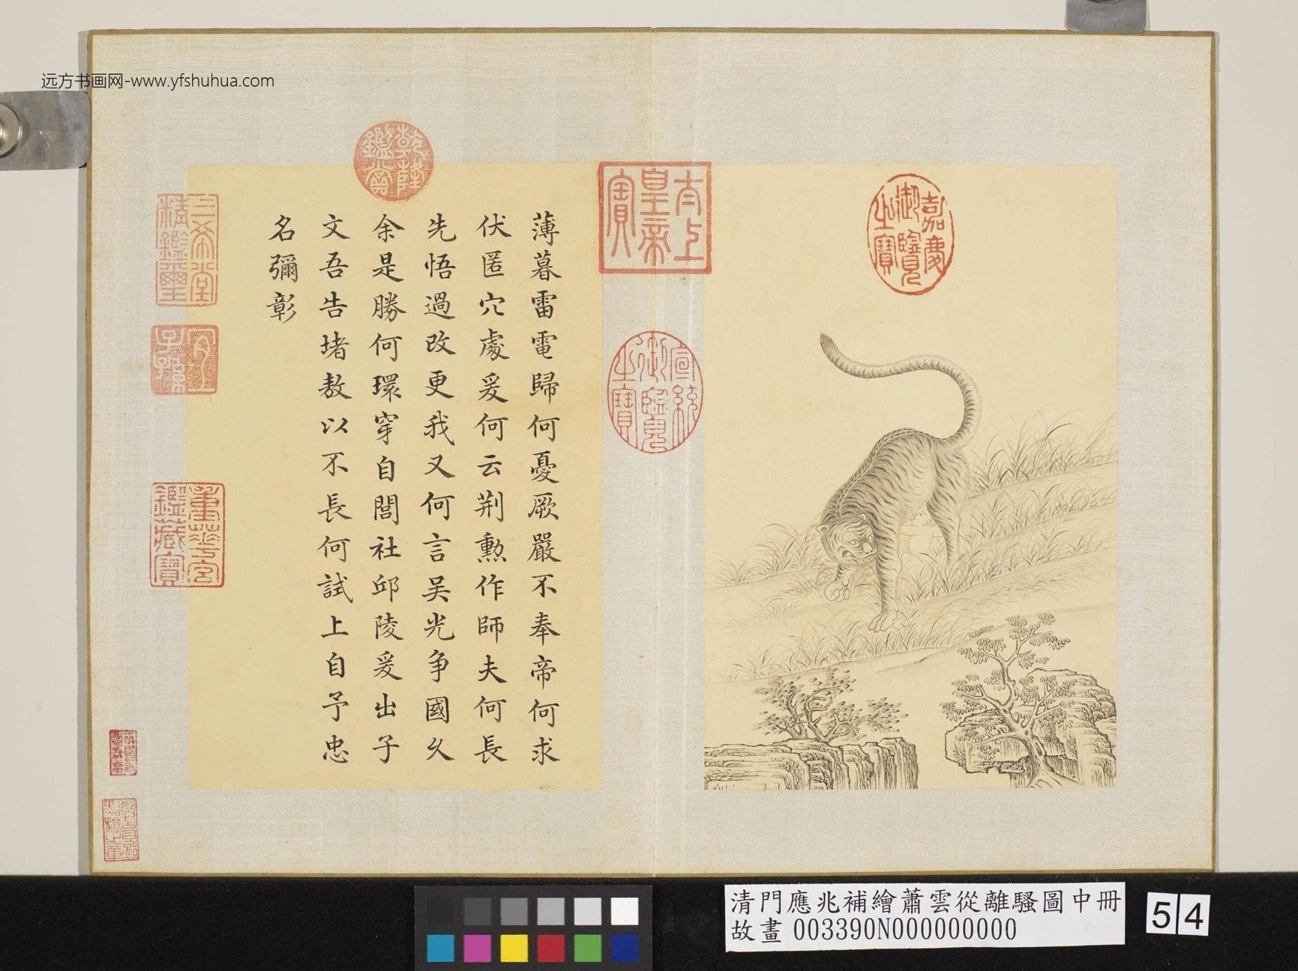 远方书画网-www.yfshuhua.com
嘉慶御覽之寶
太上皇帝之寶
宣統御覽之寶
乾隆鑑賞
薄暮雷電歸何憂厥嚴不奉帝何求
伏匿穴處爰何云荆勲作師夫何長
先悟過改更我又何言吴光争國久
余是勝何環穿自閭社邱陵爰出子
文吾告堵敖以不長何試上自予忠
名彌彰
三希堂精鑑璽
宜子孫
重華宮鑑藏寶
清門應兆補繪蕭雲從離騷圖中冊
故畫 003390N000000000
54